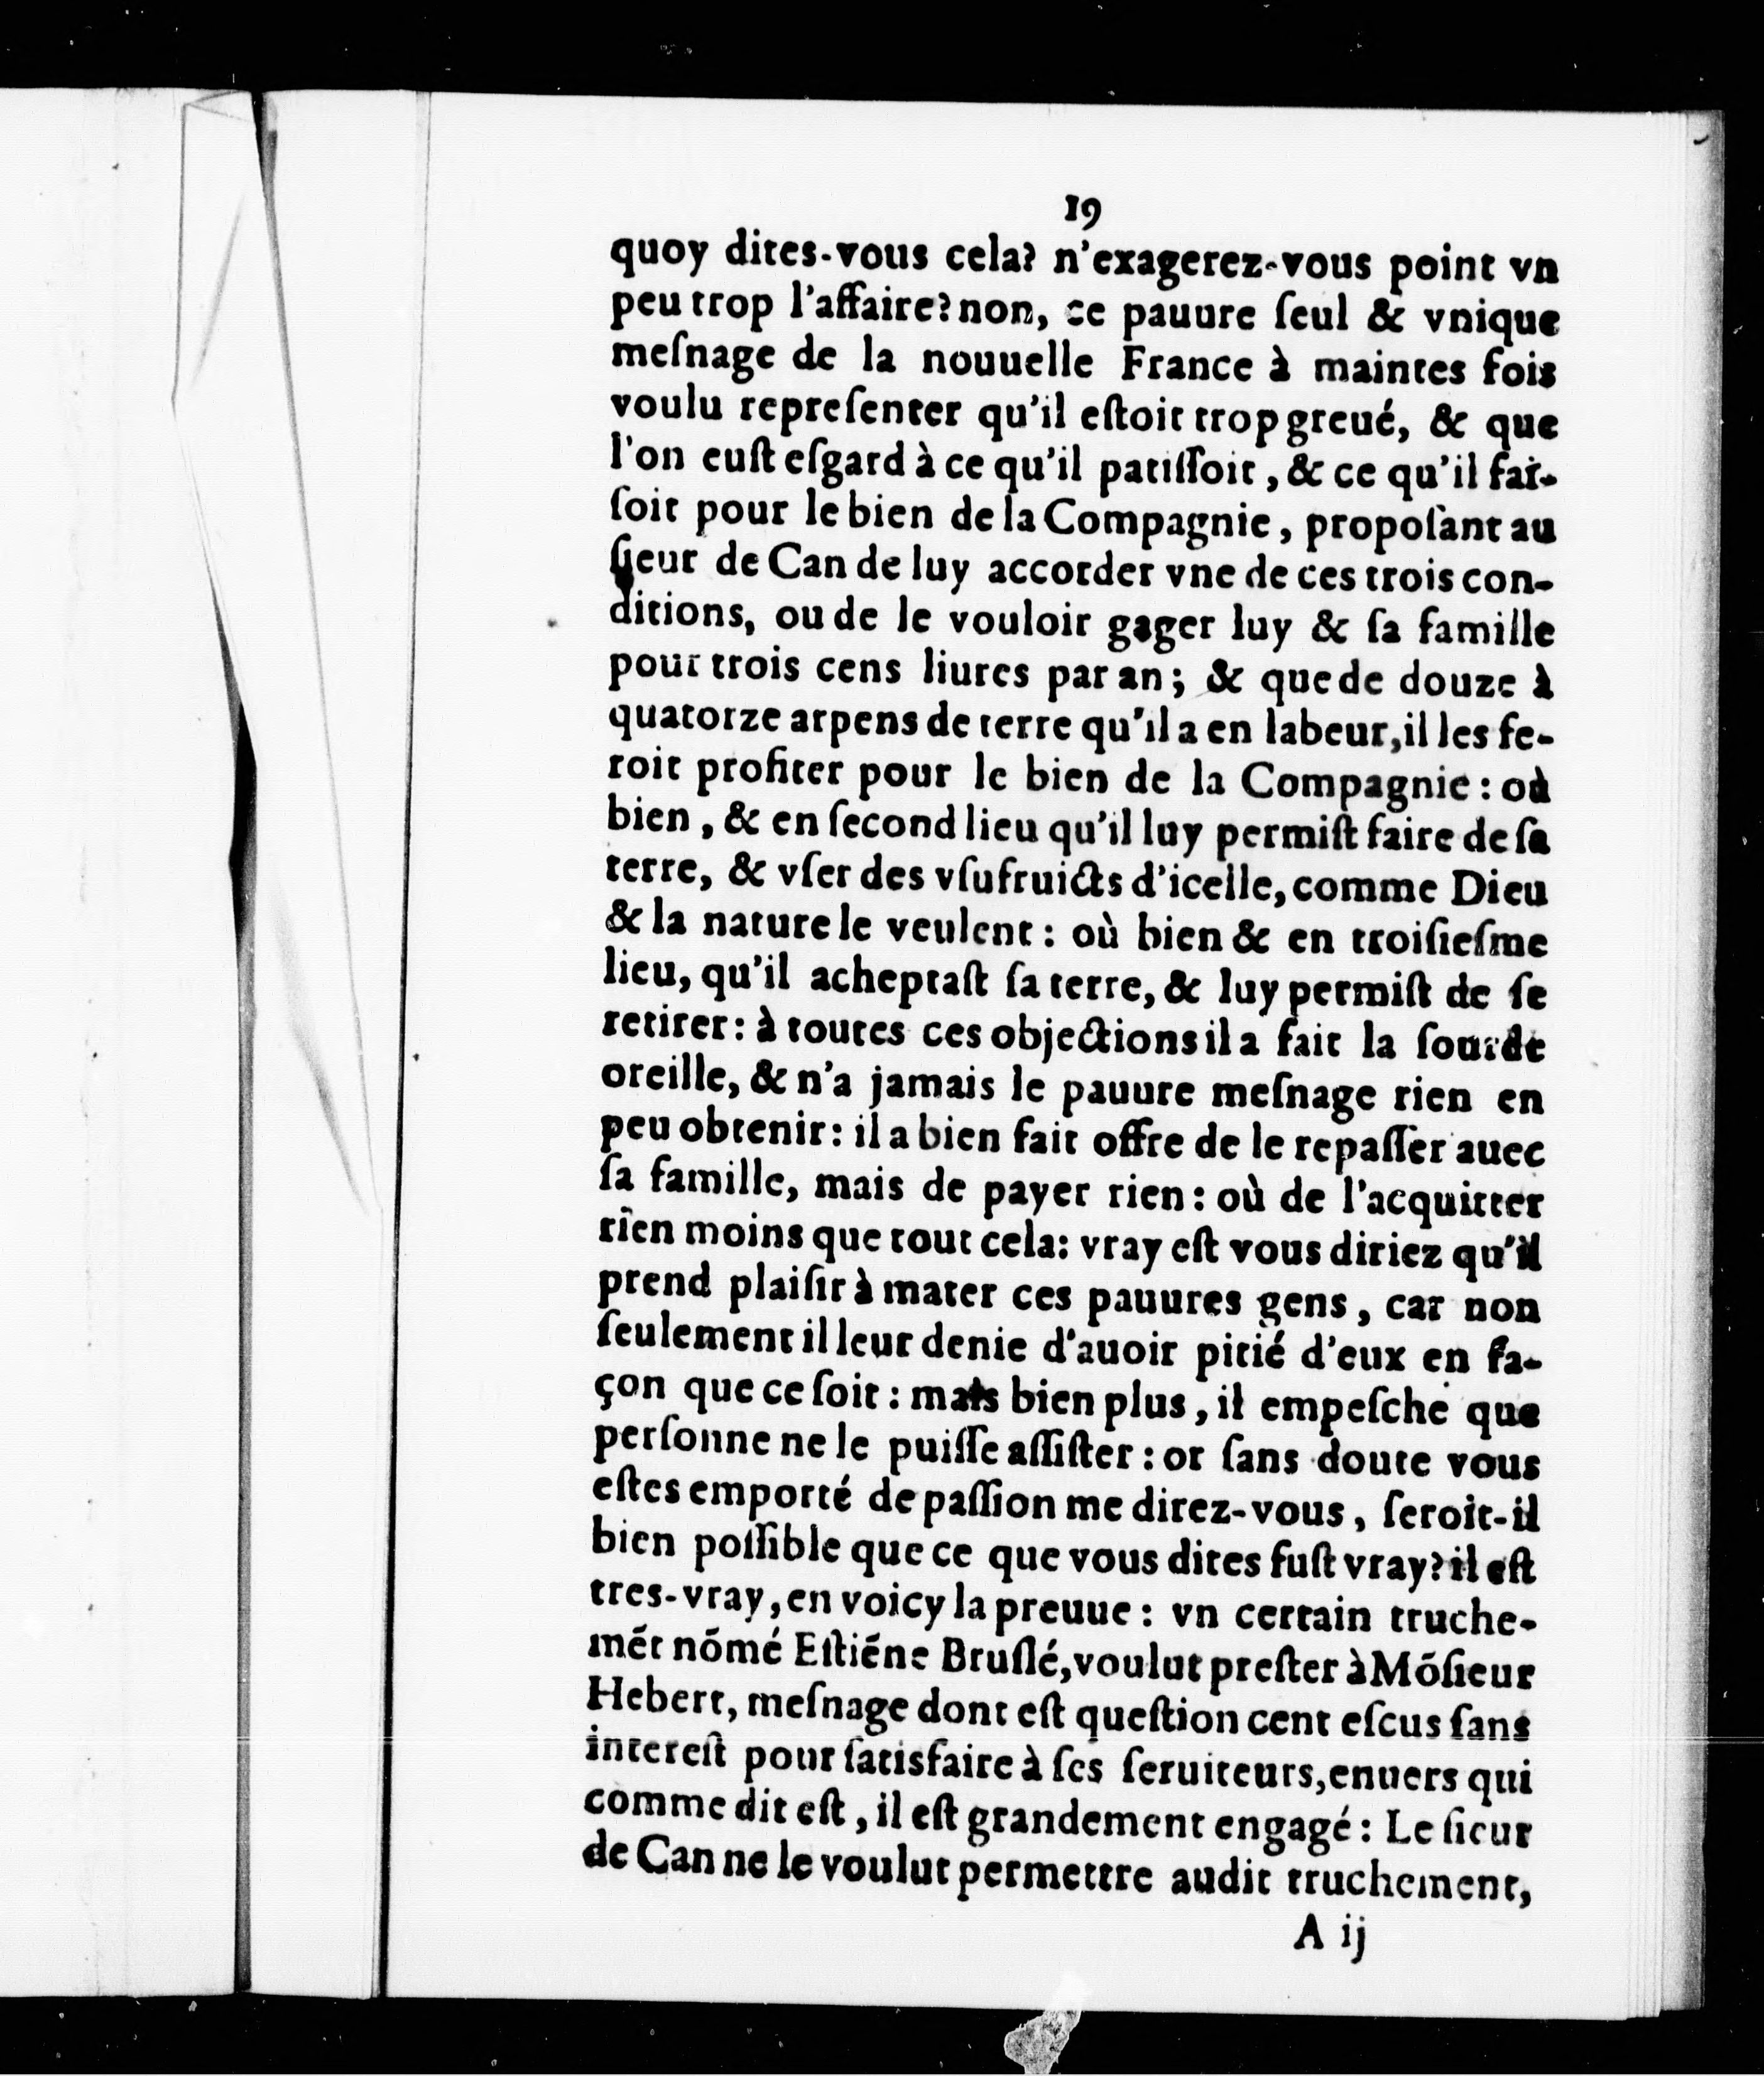 19
quoy dites-vous cela? n'exagerez-vous point vn
peu trop l'affaire? non, ce pauure ſeul & vnique
meſnage de la nouuelle France à maintes fois
voulu repreſenter qu'il eſtoit trop greué, & que
l'on euſt eſgard à ce qu'il patiſſoit, & ce qu'il fai-
ſoit pour le bien de la Compagnie, propoſant au
ſieur de Can de luy accorder vne de ces trois con-
ditions, ou de le vouloir gager luy & ſa famille
pour trois cens liures par an; & que de douze à
quatorze arpens de terre qu'il a en labeur, il les fe-
roit profiter pour le bien de la Compagnie: où
bien, & en ſecond lieu qu'il luy permiſt faire de ſa
terre, & vſer des vſufruicts d'icelle, comme Dieu
& la nature le veulent: où bien & en troiſieſme
lieu, qu'il acheptaſt ſa terre, & luy permiſt de ſe
retirer: à toutes ces objections il a fait la ſourde
oreille, & n'a jamais le pauure meſnage rien en
peu obtenir: il a bien fait offre de le repaſſer auec
ſa famille, mais de payer rien: où de l'acquitter
rien moins que tout cela: vray eſt vous diriez qu'il
prend plaiſir à mater ces pauures gens, car non
ſeulement il leur denie d'auoir pitié d'eux en fa-
çon que ce ſoit: mais bien plus, il empeſche que
perſonne ne le puiſſe aſſiſter: or ſans doute vous
eſtes emporté de paſſion me direz-vous, ſeroit-il
bien poſſible que ce que vous dites fuſt vray? il eſt
tres-vray, en voicy la preuue: vn certain truche-
mẽt nõmé Eſtiẽne Bruſlé, voulut preſter à Mõſieur
Hebert, meſnage dont eſt queſtion cent eſcus ſans
intereſt pour ſatisfaire à ſes ſeruiteurs, enuers qui
comme dit eſt, il eſt grandement engagé: Le ſieur
de Can ne le voulut permettre audit truchement,
A ij